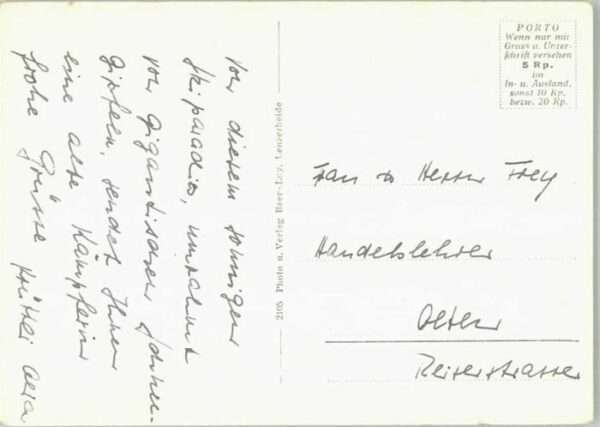 von diesem sonnigen
Skiparadies, umrahmt
von gigantischen Schnee-
gipfeln, sendet Ihnen
eine alte Kämpferin
frohe Grüsse
2105 Photo u. Verlag Lenzerheide
PORTO
Wenn nur mit
Gruss u. Unter-
schrift versehen
5 Rp.
im
In- u. Ausland,
sonst 10 Kp.
bezw. 20 Rp.
Frau u Herrn Frey
Handelslehrer
Olten
Reiserstrasse